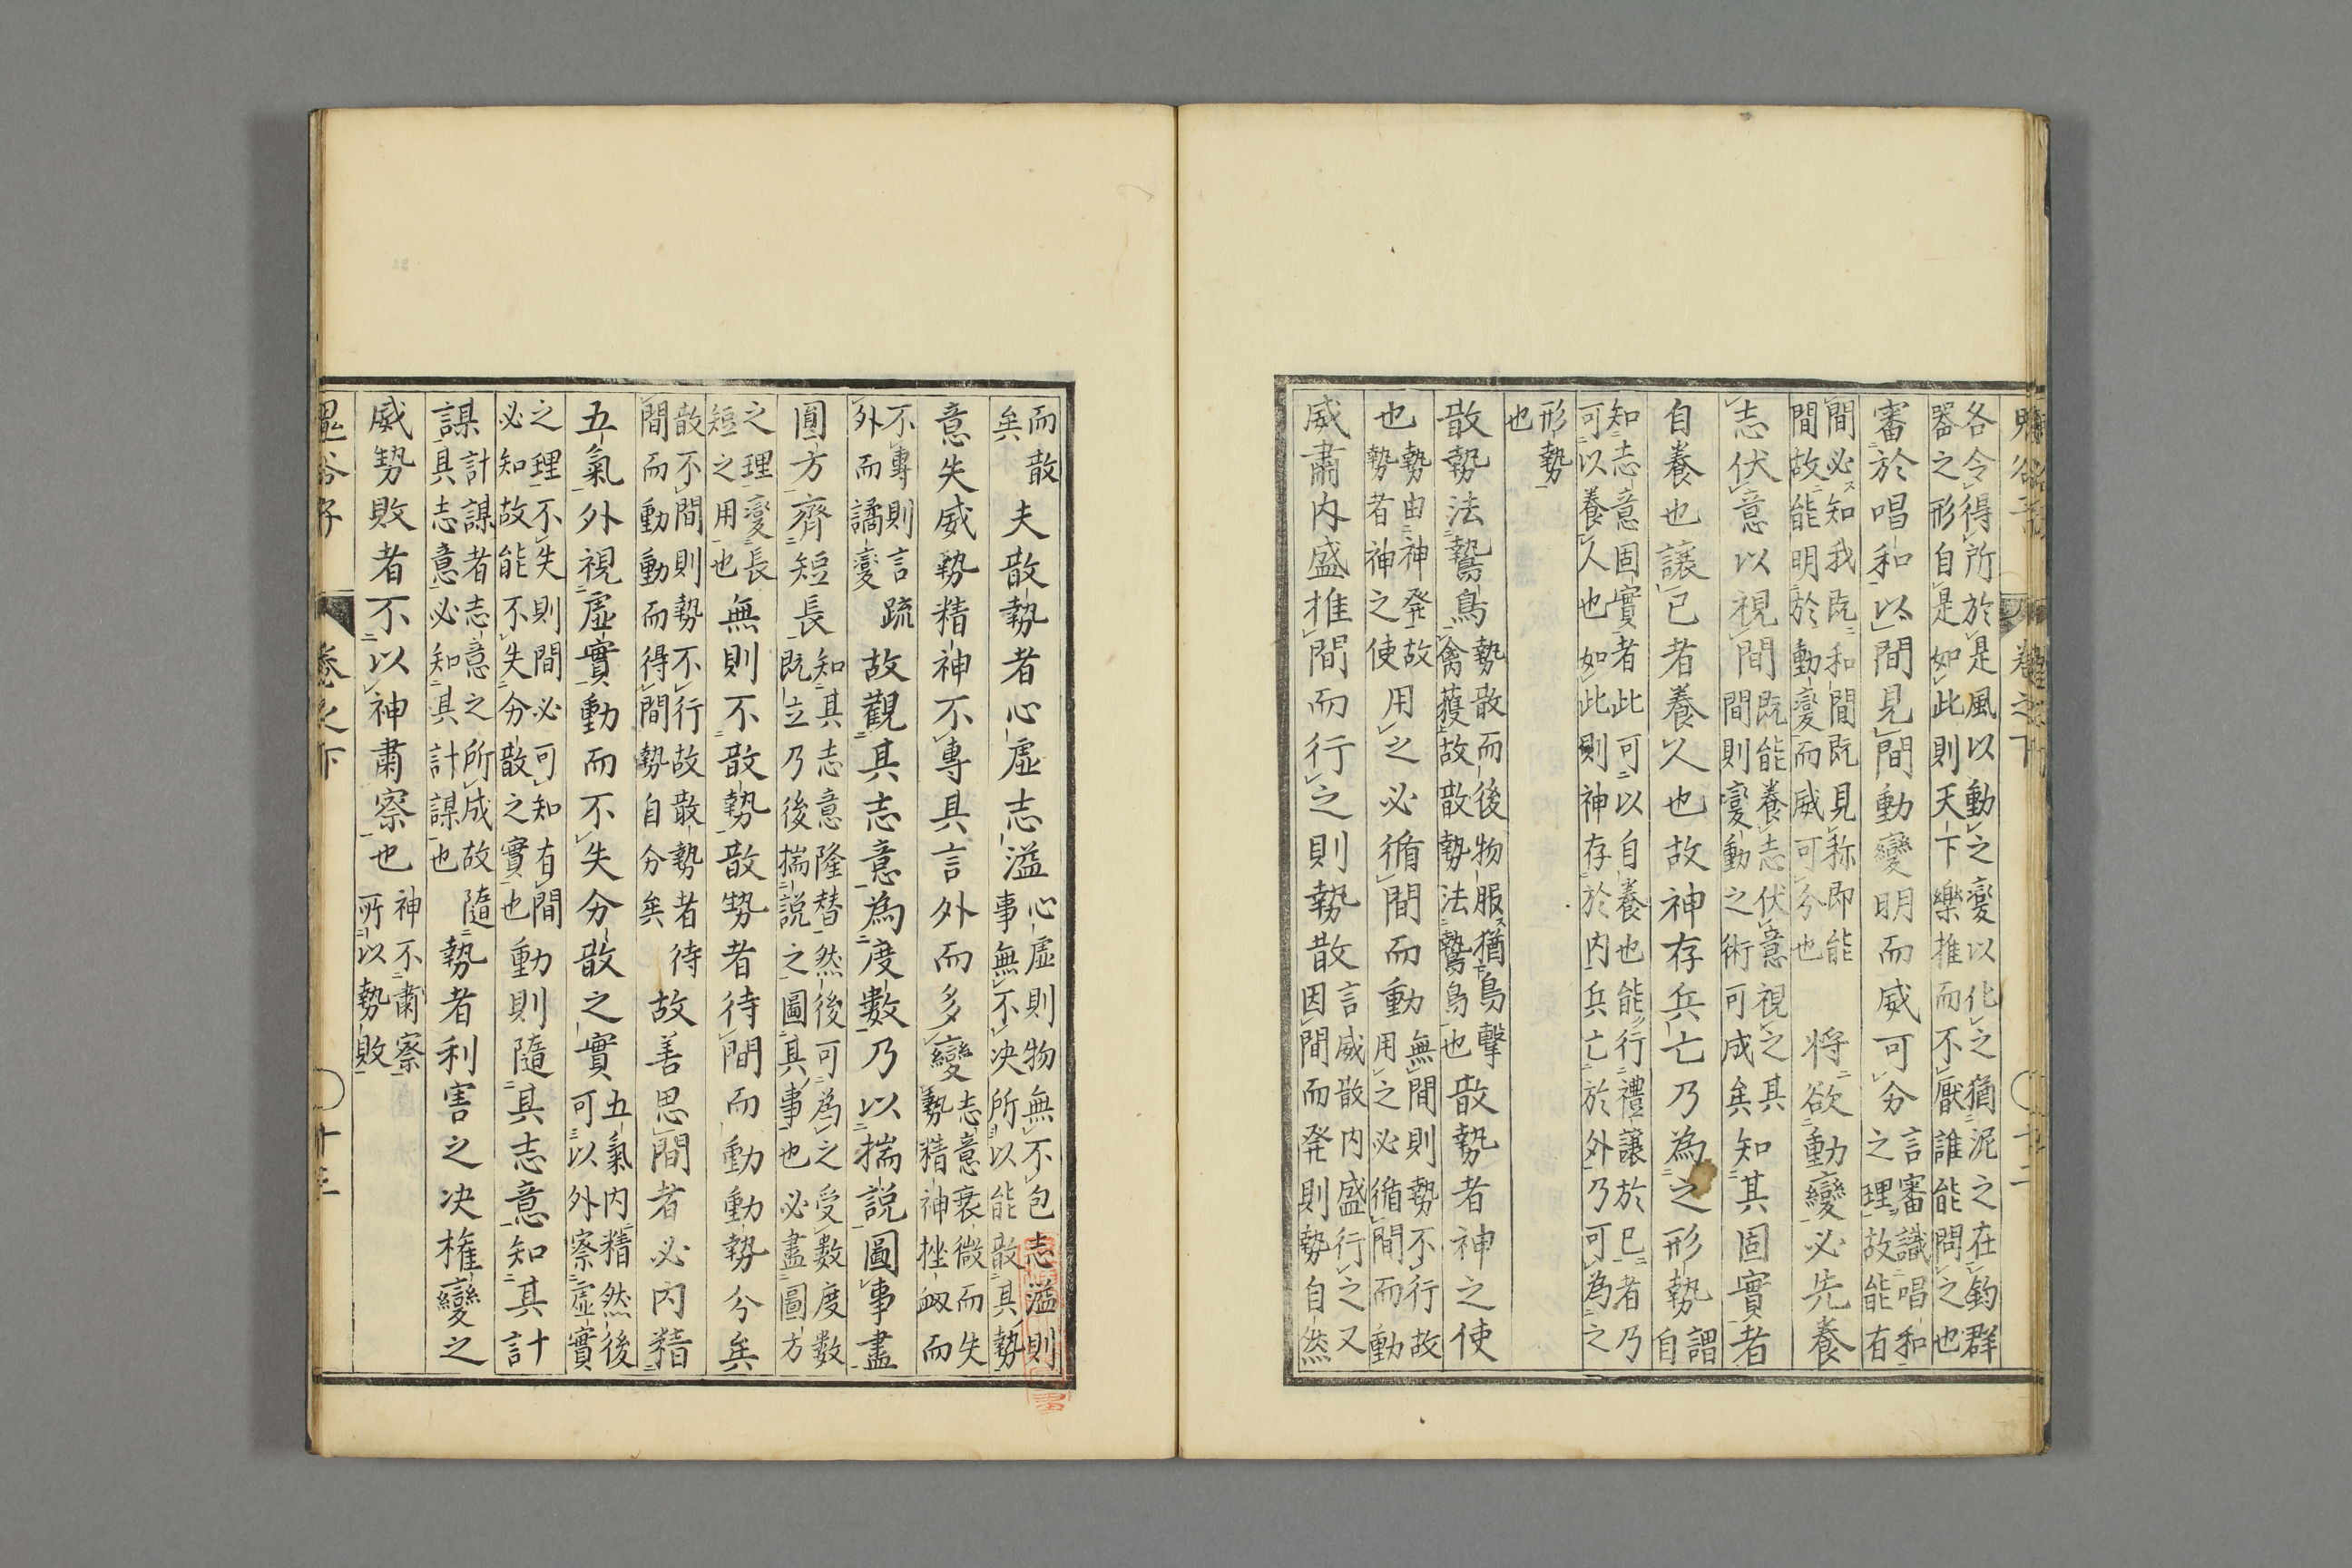 各令得所於是風以動之變以化之猶泥之在鈞群
器之形自是如此則天下樂推而不厭誰能問之也
審於唱和以間見間動變明而威可分
言審識唱和
之理故能有
間必知我既和間既見称即能
間故能明於動變而威可分也
将欲動變必先養
志伏意以視間
既能養志伏意視之其
間則變動之術可成矣
知其固實者
自養也讓己者養人也故神存兵亡乃為之形勢
謂
自
知志意固實者此可以自養也能行禮讓於己者乃
可以養人也如此則神存於内兵亡於外乃可為之
形勢
也
散勢法鷙鳥
勢散而後物服猶鳥擊
禽獲故散勢法鷙鳥也
散勢者神之使
也
勢由神発故
勢者神之使
用之必循間而動
無間則勢不行故
用之必循間而動
威肅内盛推間而行之則勢散
言威散内盛行之又
因間而発則勢自然
而散
矣
夫散勢者心虚志溢
心虚則物無不包志溢則
事無不决所以能散其勢
意失威勢精神不專其言外而多變
志意衰微而失
勢精神挫衂而
不專則言疏
外而譎變
故觀其志意為度數乃以揣説圖事盡
圓方齊短長
知其志意隆替然後可為之受數度數
既立乃後揣説之圖其事也必盡圖方
之理變長
短之用也
無則不散勢散勢者待間而動動勢分矣
散不間則勢不行故散勢者待
間而動動而得間勢自分矣
故善思間者必内精
五氣外視虚實動而不失分散之實
五氣内精然後
可以外察虚實
之理不失則間必可知有間
必知故能不失分散之實也
動則隨其志意知其計
謀計謀者志意之所成故隨
其志意必知其計謀也
勢者利害之决権變之
威勢敗者不以神肅察也
神不肅察
所以勢敗
鬼谷子 卷之下 十三